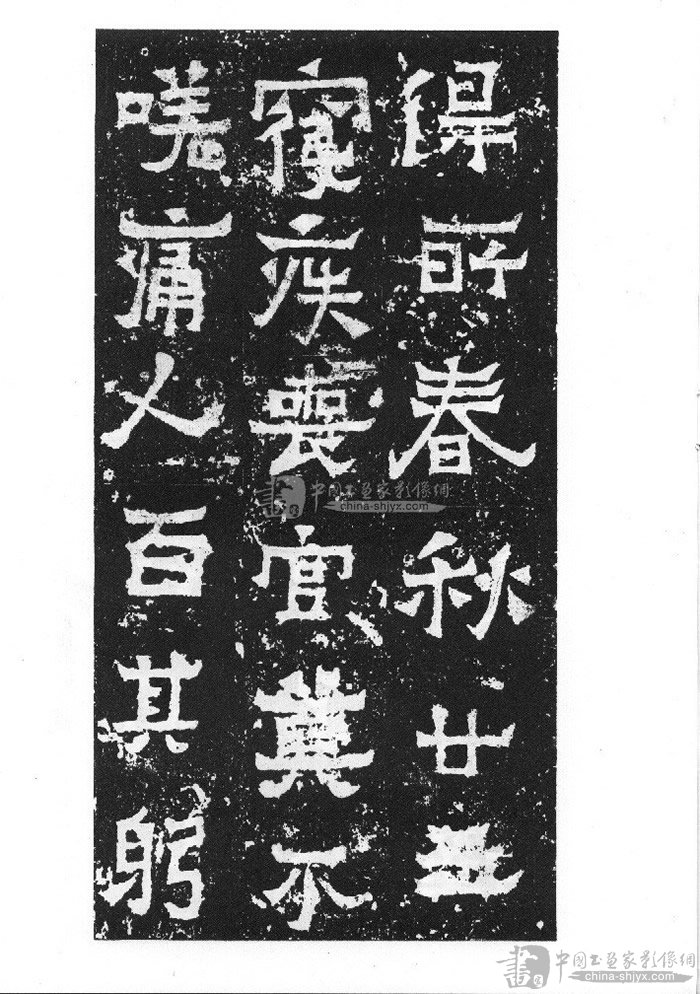 得所春秋廿
寝疾喪官莫不
嗟痛人百其躬
書 中国书画家影像網
china-shjyx.com
書 中国书画家影像網
china-shjyx.com